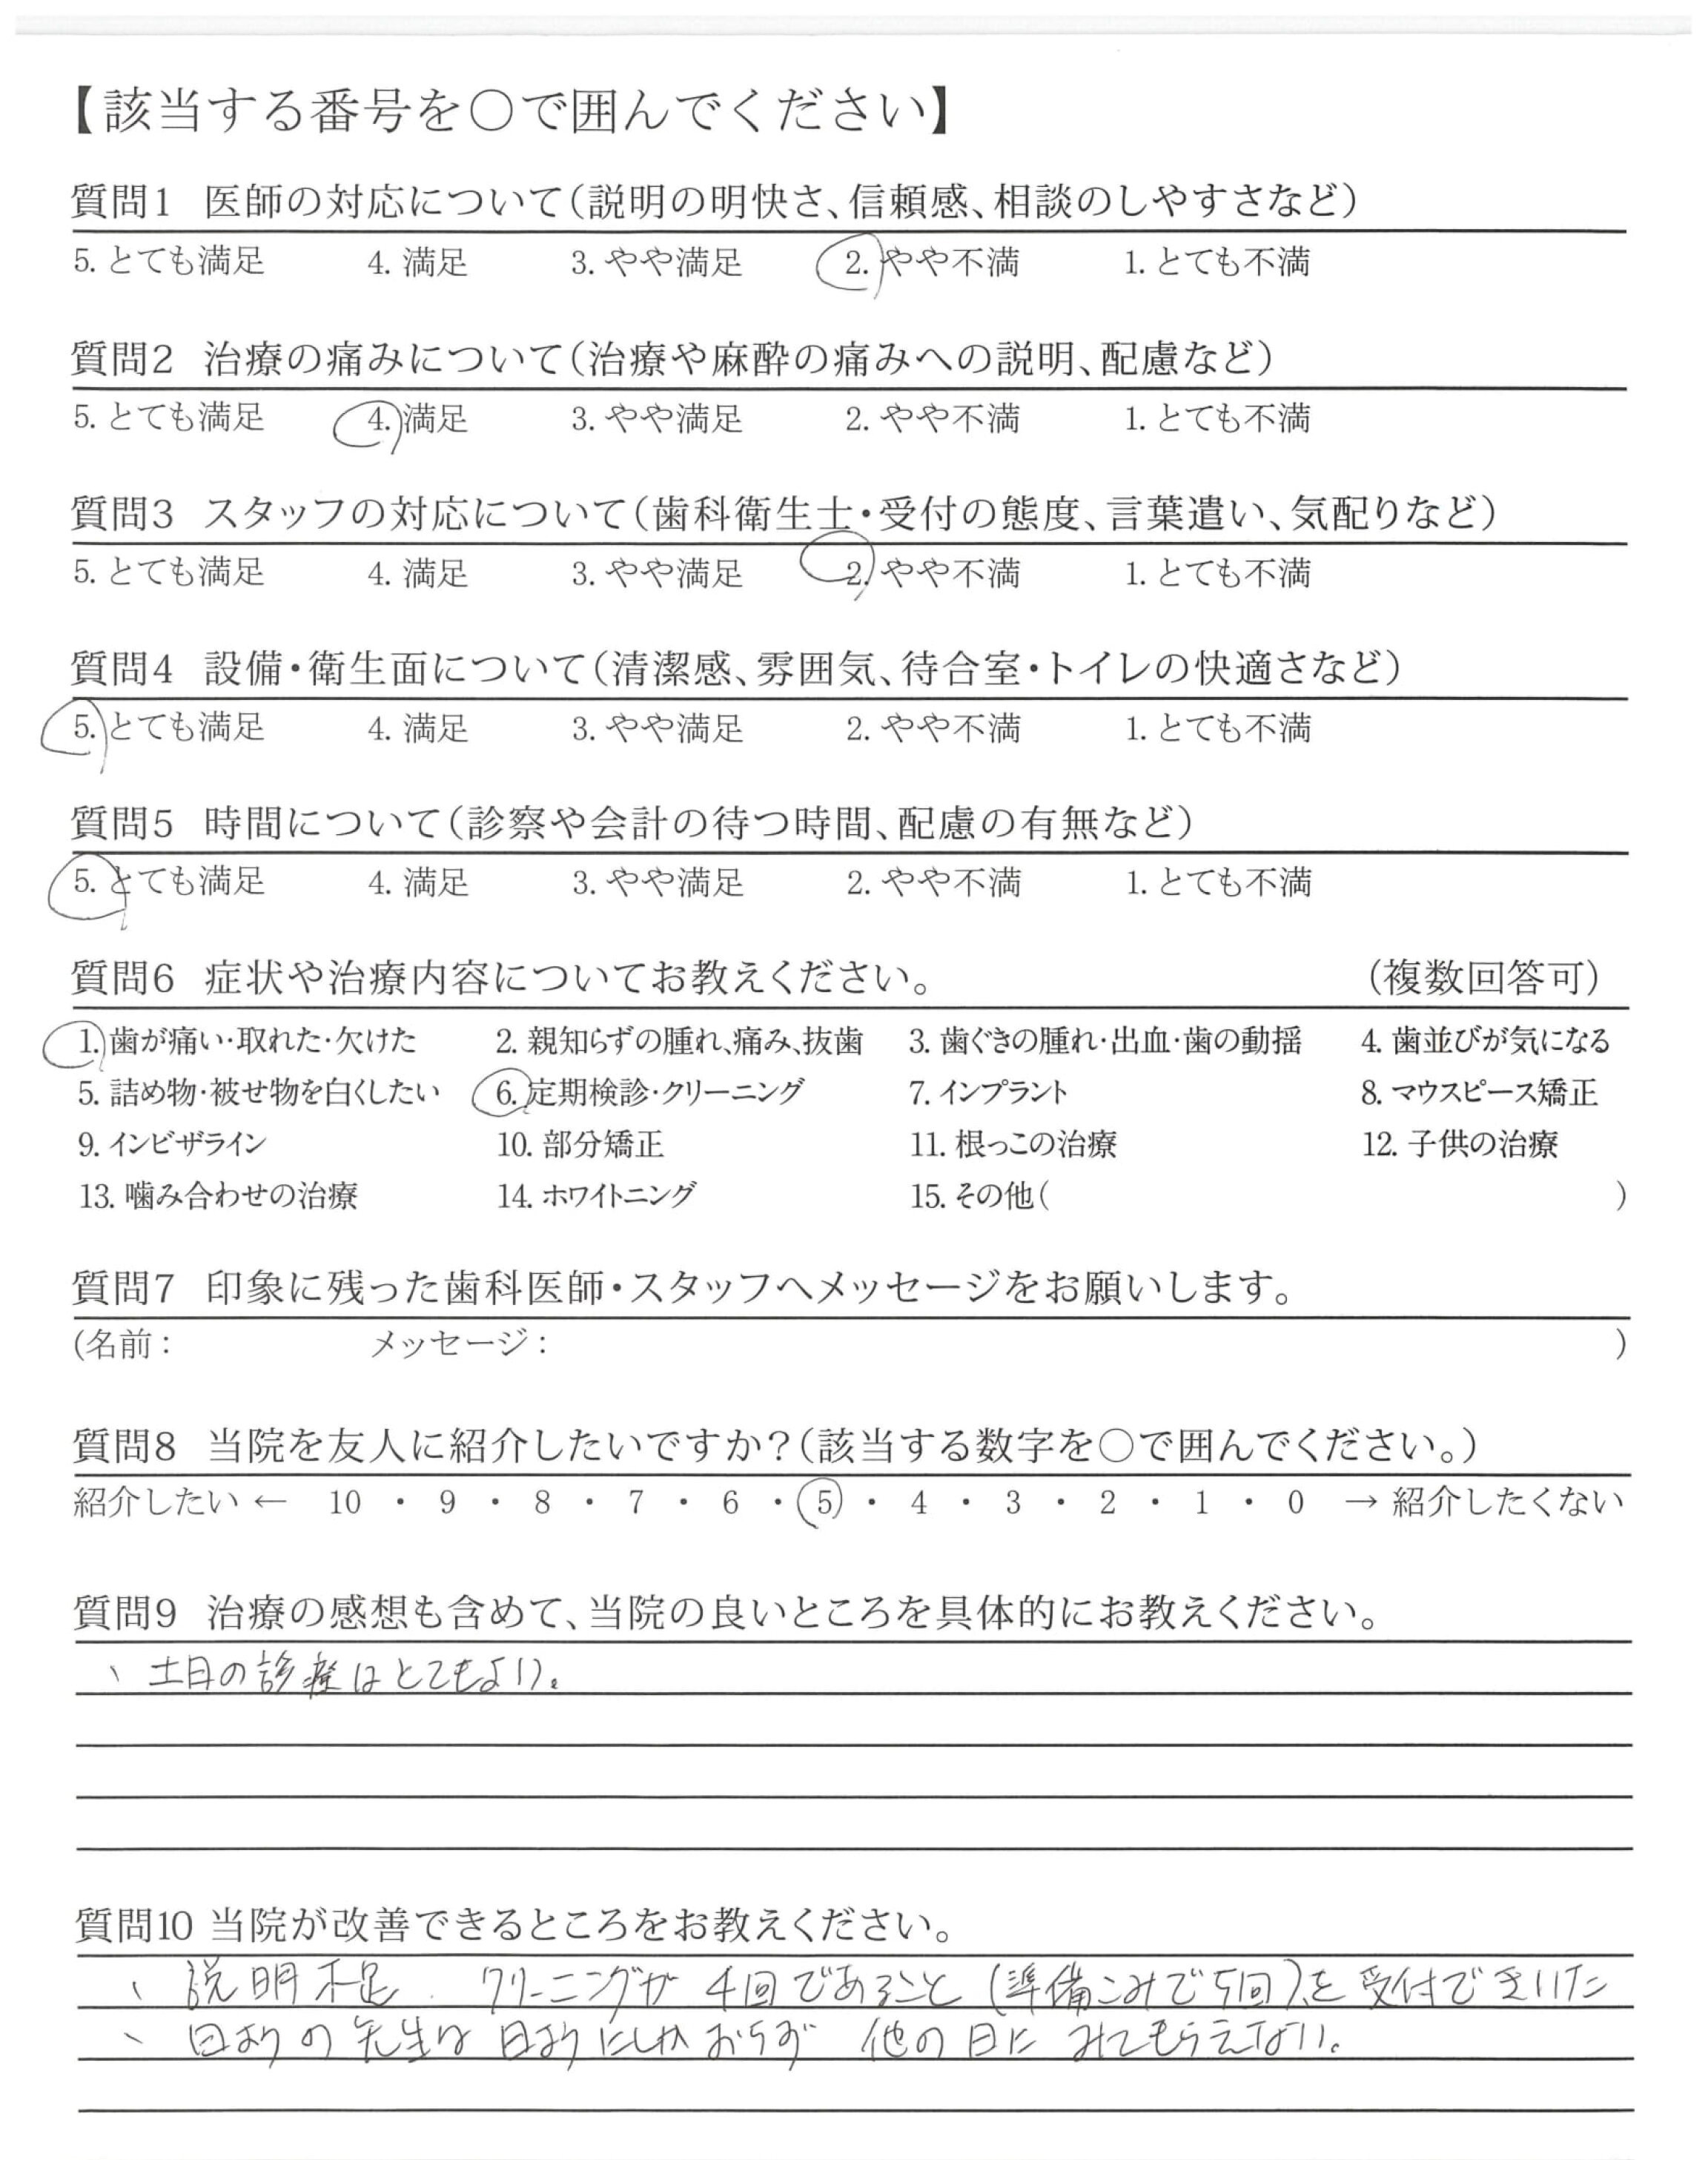 【該当する番号を〇で囲んでください】
質問1 医師の対応について(説明の明快さ、信頼感、相談のしやすさなど)
5. とても満足 4. 満足 3. やや満足 2. やや不満 1. とても不満
質問2 治療の痛みについて(治療や麻酔の痛みへの説明、配慮など)
5. とても満足 4. 満足 3. やや満足 2. やや不満 1. とても不満
質問3 スタッフの対応について(歯科衛生士・受付の態度、言葉遣い、気配りなど)
5. とても満足 4. 満足 3. やや満足 2. やや不満 1. とても不満
質問4 設備・衛生面について(清潔感、雰囲気、待合室・トイレの快適さなど)
5. とても満足 4. 満足 3. やや満足 2. やや不満 1. とても不満
質問5 時間について(診察や会計の待つ時間、配慮の有無など)
5. とても満足 4. 満足 3. やや満足 2. やや不満 1. とても不満
質問6 症状や治療内容についてお教えください。 (複数回答可)
1. 歯が痛い・取れた・欠けた 2. 親知らずの腫れ、痛み、抜歯 3. 歯ぐきの腫れ・出血・歯の動揺 4. 歯並びが気になる
5. 詰め物・被せ物を白くしたい 6. 定期検診・クリーニング 7. インプラント 8. マウスピース矯正
9. インビザライン 10. 部分矯正 11. 根っこの治療 12. 子供の治療
13. 噛み合わせの治療 14. ホワイトニング 15. その他( )
質問7 印象に残った歯科医師・スタッフへメッセージをお願いします。
(名前: メッセージ: )
質問8 当院を友人に紹介したいですか?(該当する数字を〇で囲んでください。)
紹介したい ← 10 ・ 9 ・ 8 ・ 7 ・ 6 ・ 5 ・ 4 ・ 3 ・ 2 ・ 1 ・ 0 → 紹介したくない
質問9 治療の感想も含めて、当院の良いところを具体的にお教えください。
、土日の診療はとてもよい。
質問10 当院が改善できるところをお教えください。
、説明不足. クリーニングが 4回であること (準備こみで5回)を 受付できいた
、日ようの 先生は 日ようにしか おらず 他の日に みてもらえない。